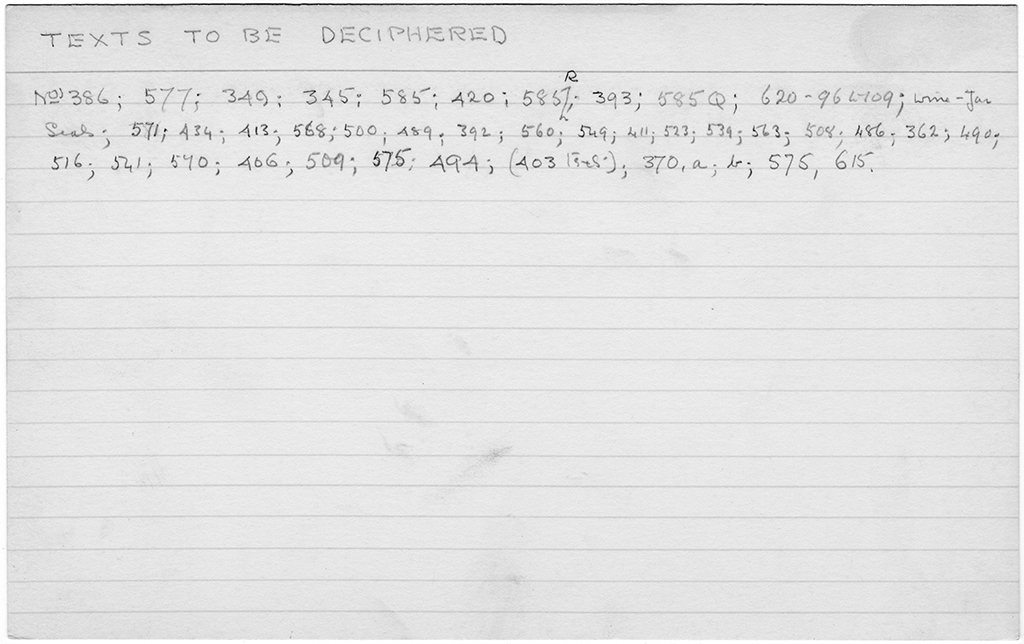 TEXTS TO BE DECIPHERED
Nos) 386; 577; 349; 345; 585; 420; 585 R; 393; 585Q; 620-96 L-109; wine-Jar
Seals; 571; 434; 413; 568; 500; 489; 392; 560; 549; 411; 523; 539; 563; 508; 486; 362; 490;
516; 541; 570; 406; 509; 575; 494; (403 ); 370, a; b; 575, 615.